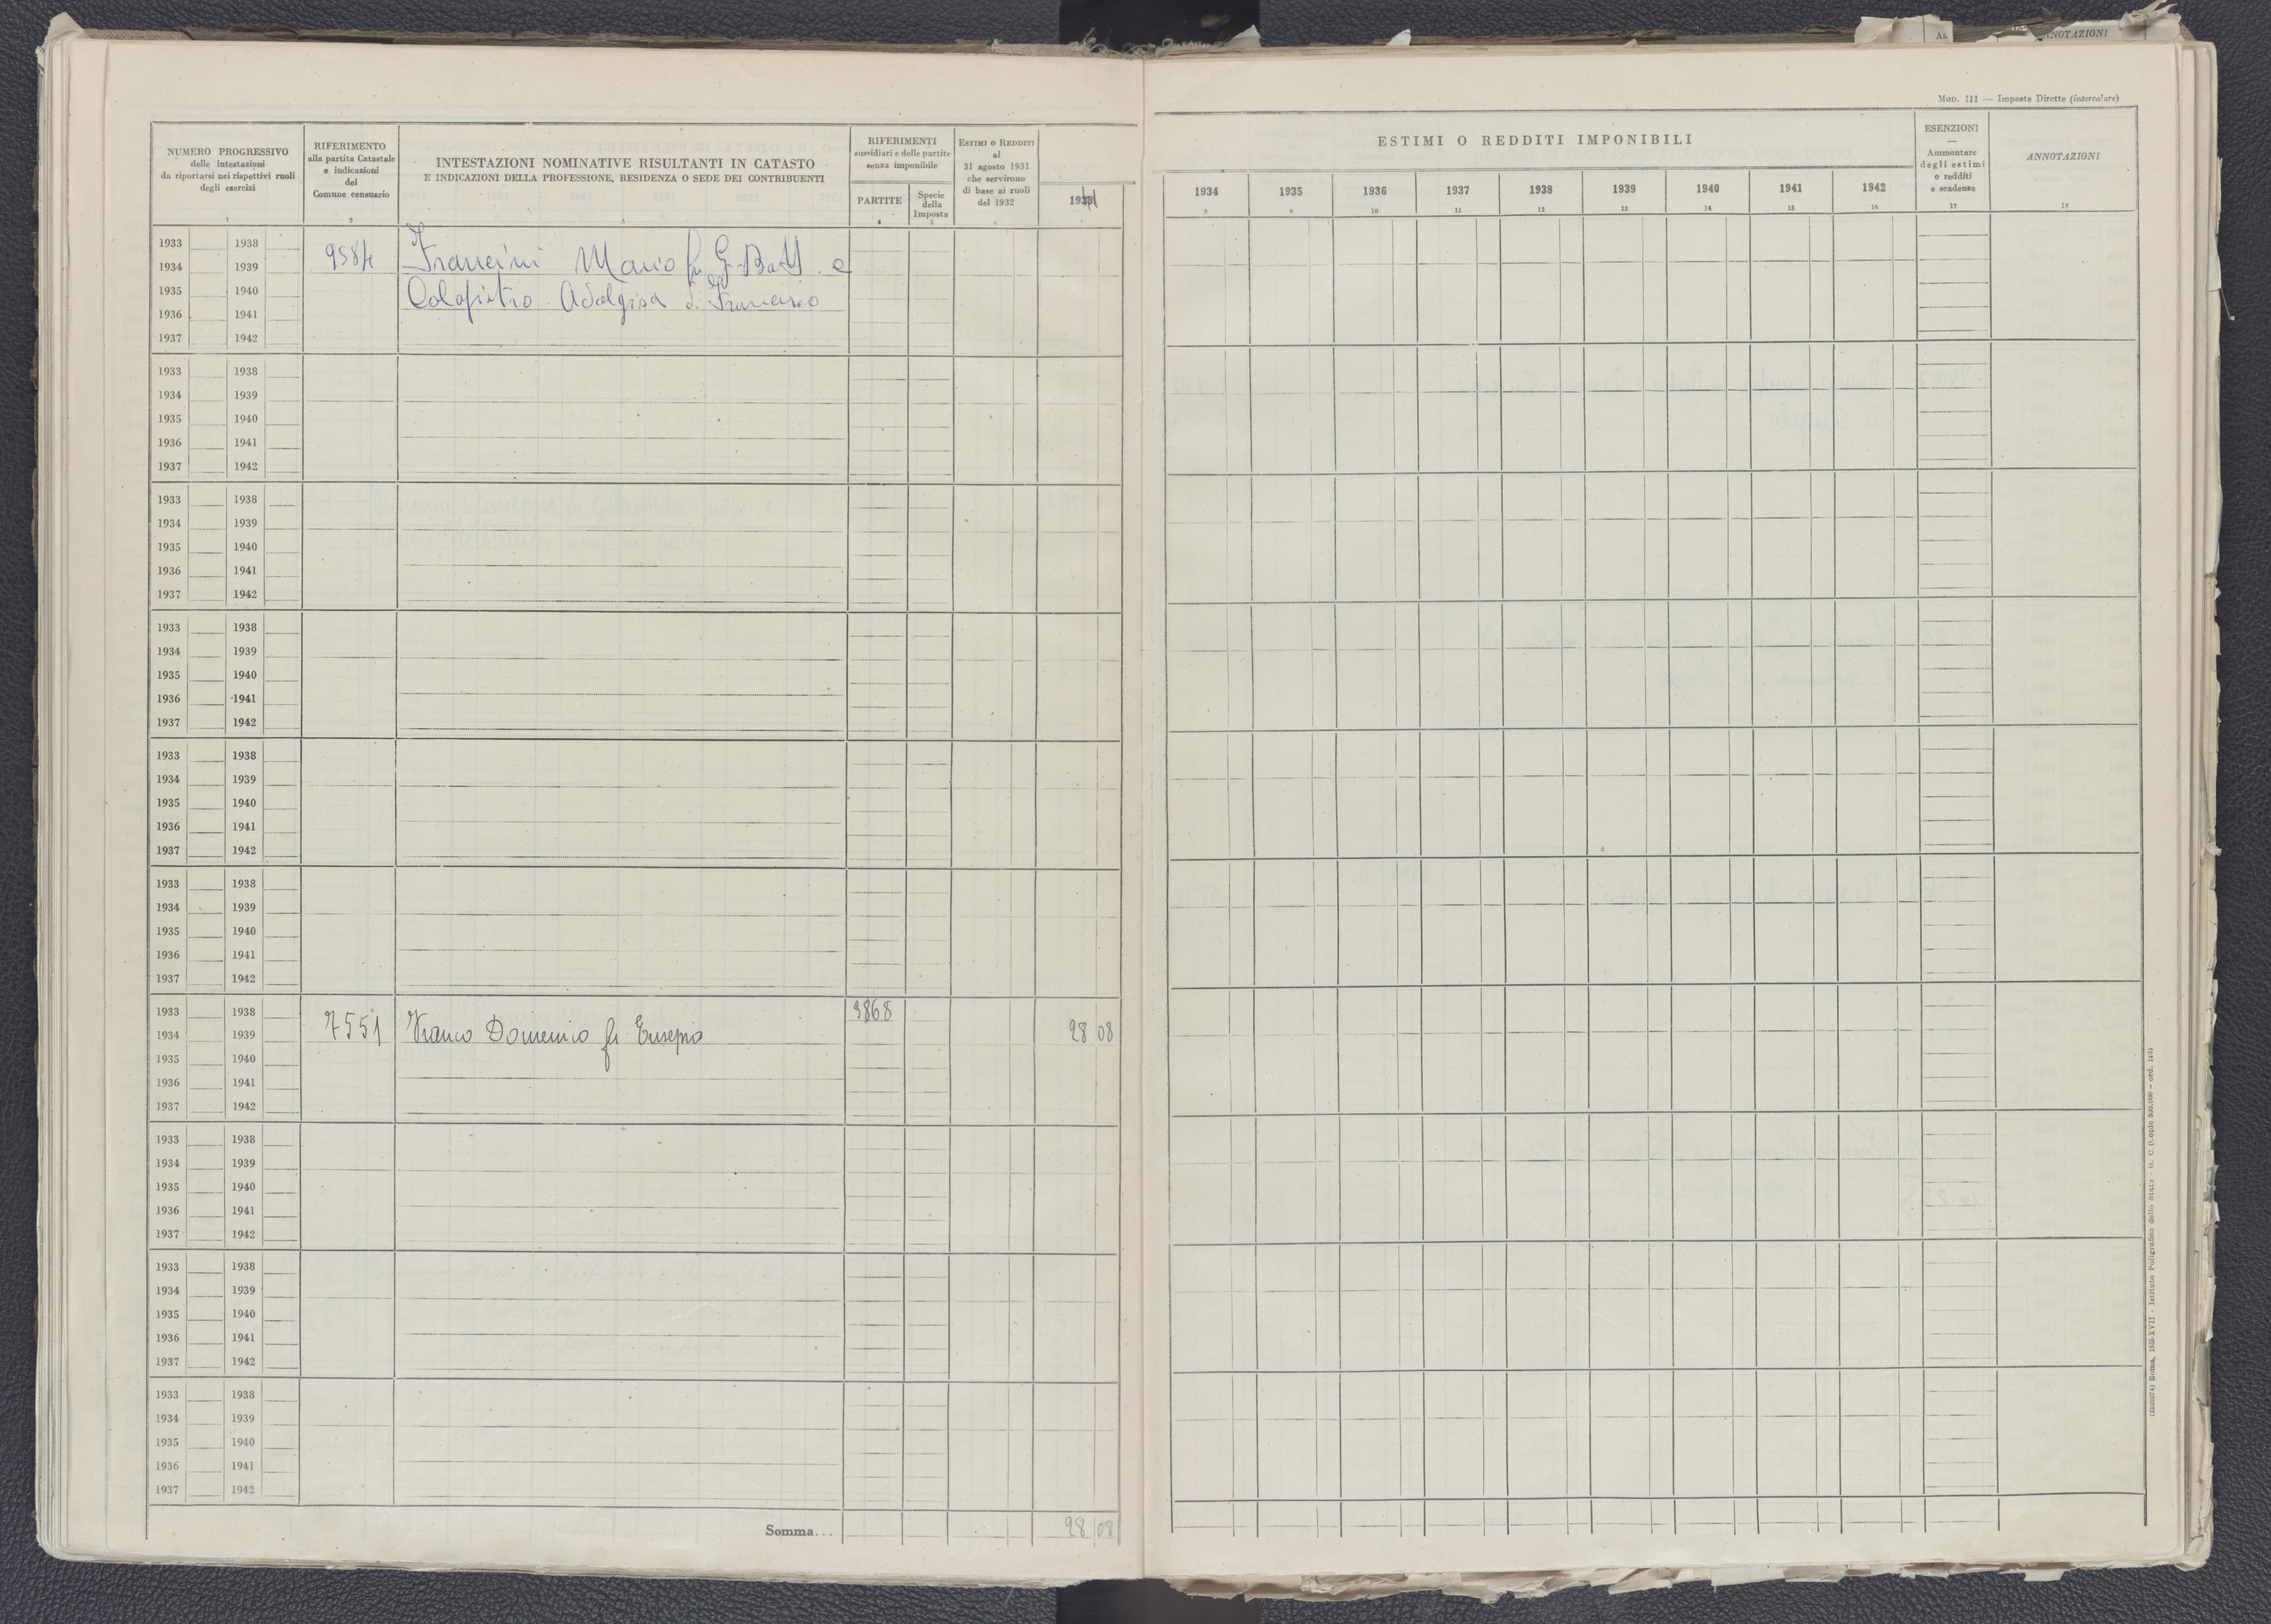 ANNOTAZIONI
NUMERO PROGRESSIVO
delle intestazioni
da riportarsi nei rispettivi ruoli
degli esercizi
1
RIFERIMENTO
alla partita Catastale
e indicazioni
del
Comune censuario
2
INTESTAZIONI NOMINATIVE RISULTANTI IN CATASTO
E INDICAZIONI DELLA PROFESSIONE, RESIDENZA O SEDE DEI CONTRIBUENTI
3
RIFERIMENTI
sussidiari e delle partite
senza imponibile
PARTITE
4
Specie
della
Imposta
5
ESTIMI O REDDITI
al
31 agosto 1931
che servirono
di base ai ruoli
del 1932
6
7
1933 1938
1934 1939
1935 1940
1936 1941
1937 1942
9584
Francini Mario fu G. Batt e
Colapietro Adalgisa di Francesco
1933 1938
1934 1939
1935 1940
1936 1941
1937 1942
1933 1938
1934 1939
1935 1940
1936 1941
1937 1942
1933 1938
1934 1939
1935 1940
1936 1941
1937 1942
1933 1938
1934 1939
1935 1940
1936 1941
1937 1942
1933 1938
1934 1939
1935 1940
1936 1941
1937 1942
1933 1938
1934 1939
1935 1940
1936 1941
1937 1942
7551
Franco Domenico fu Eusepio
9868
28 08
1933 1938
1934 1939
1935 1940
1936 1941
1937 1942
1933 1938
1934 1939
1935 1940
1936 1941
1937 1942
1933 1938
1934 1939
1935 1940
1936 1941
1937 1942
Somma... 28 08
Mod. III — Imposte Dirette (intercalare)
ESTIMI O REDDITI IMPONIBILI
1934 1935 1936 1937 1938 1939 1940 1941 1942
8 9 10 11 12 13 14 15 16
ESENZIONI
—
Ammontare
degli estimi
o redditi
e scadenze
17
ANNOTAZIONI
18
Roma, 1938-XVII - Istituto Poligrafico dello Stato - G. C.